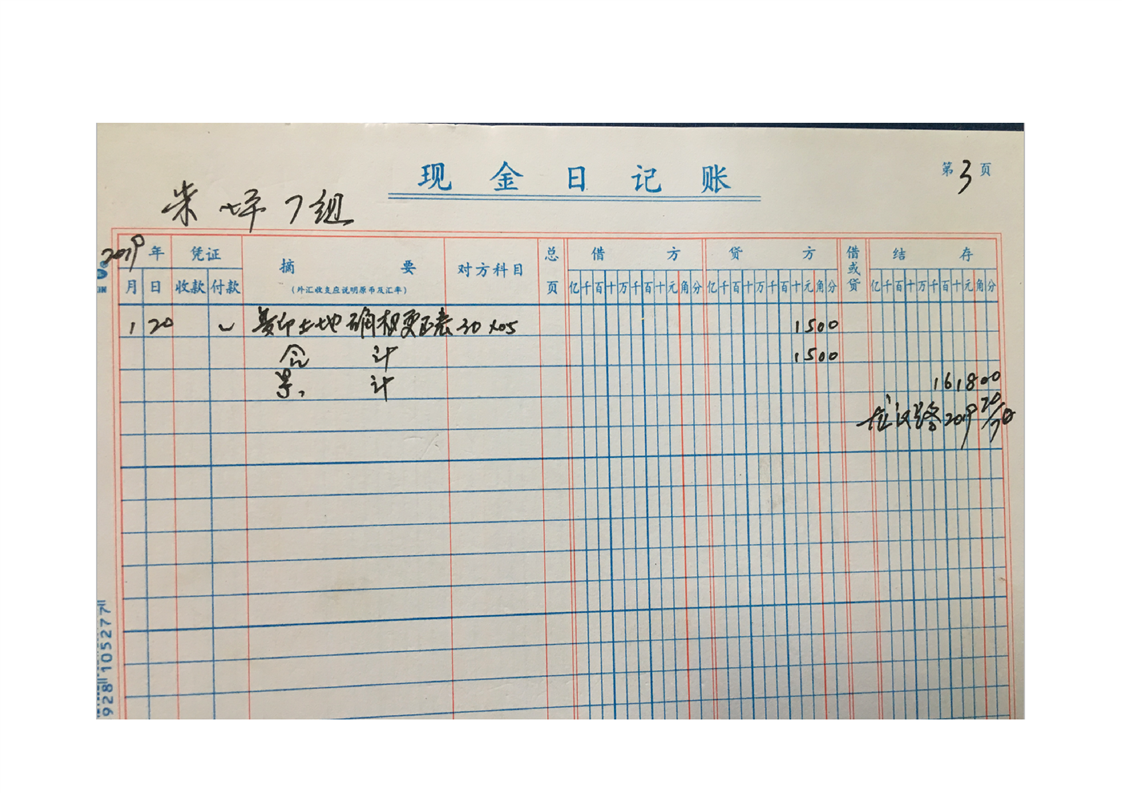 现金日记账
第3页
朱坪7组
2019年 凭证 摘要 对方科目 总页 借方 贷方 借或贷 结存
(外汇收支应说明原币及汇率)
月 日 收款 付款 亿千百十万千百十元角分 亿千百十万千百十元角分 亿千百十万千百十元角分
1 20 复印土地确权更正表30×05 1500
合计 1500
累计 161800
2019
928 105277